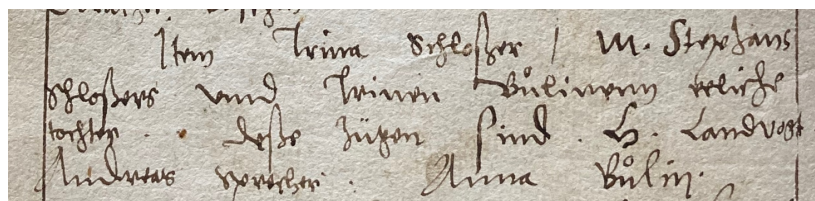 Item Trina Schloßer / M. Stephans
Schloßers vnd Trinen Bůlinenn eeliche
tochter. deße zügen sind. H. Landvogt
Andreas Sprecher. Anna Bůlin.